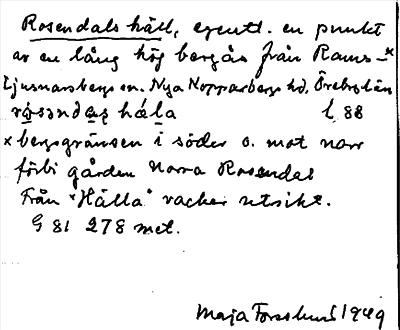 Rosendals häll, egentl. en punkt
av en lång hög bergås från Rams-x
Ljusnarsbergs sn. Nya Kopparbergs hd. Örebro län
hála l. 88
x bergsgränsen i söder o. mot norr
förbi gården Norra Rosendal
Från "Hälla" vacker utsikt.
G 81 278 met.
Maja Forsslund 1949